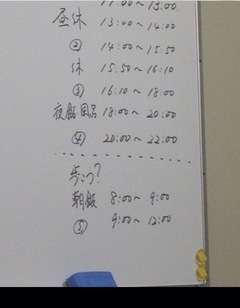 11:00～13:00
昼休 13:00～14:00
② 14:00～15:50
休 15:50～16:10
③ 16:10～18:00
夜飯 18:00～20:00
④ 20:00～22:00
朝飯 8:00～9:00
⑤ 9:00～12:00